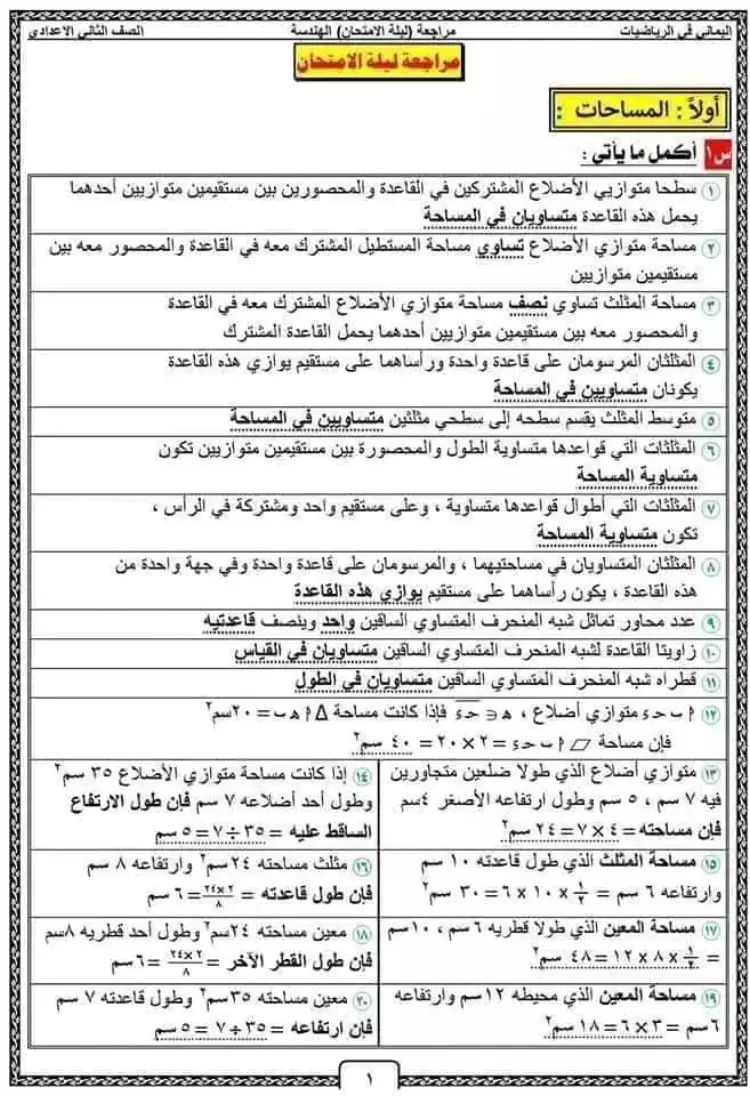 اليماني في الرياضيات
مراجعة (ليلة الامتحان) الهندسة
الصف الثاني الاعدادي
مراجعة ليلة الامتحان
أولاً : المساحات :
س١ أكمل ما يأتي :
١ سطحا متوازيي الأضلاع المشتركين في القاعدة والمحصورين بين مستقيمين متوازيين أحدهما
يحمل هذه القاعدة متساويان في المساحة
٢ مساحة متوازي الأضلاع تساوي مساحة المستطيل المشترك معه في القاعدة والمحصور معه بين
مستقيمين متوازيين
٣ مساحة المثلث تساوي نصف مساحة متوازي الأضلاع المشترك معه في القاعدة
والمحصور معه بين مستقيمين متوازيين أحدهما يحمل القاعدة المشترك
٤ المثلثان المرسومان على قاعدة واحدة ورأساهما على مستقيم يوازي هذه القاعدة
يكونان متساويين في المساحة
٥ متوسط المثلث يقسم سطحه إلى سطحي مثلثين متساويين في المساحة
٦ المثلثات التي قواعدها متساوية الطول والمحصورة بين مستقيمين متوازيين تكون
متساوية المساحة
٧ المثلثات التي أطوال قواعدها متساوية ، وعلى مستقيم واحد ومشتركة في الرأس ،
تكون متساوية المساحة
٨ المثلثان المتساويان في مساحتيهما ، والمرسومان على قاعدة واحدة وفي جهة واحدة من
هذه القاعدة ، يكون رأساهما على مستقيم يوازي هذه القاعدة
٩ عدد محاور تماثل شبه المنحرف المتساوي الساقين واحد وينصف قاعدتيه
١٠ زاويتا القاعدة لشبه المنحرف المتساوي الساقين متساويان في القياس
١١ قطراه شبه المنحرف المتساوي الساقين متساويان في الطول
١٢ ا ب حـ ء متوازي أضلاع ، هـ ∋ حـ ء فإذا كانت مساحة Δ ا هـ ب = ٢٠سم٢
فإن مساحة ▱ ا ب حـ ء = ٢ × ٢٠ = ٤٠ سم٢
١٣ متوازي أضلاع الذي طولا ضلعين متجاورين
فيه ٧ سم ، ٥ سم وطول ارتفاعه الأصغر ٤سم
فإن مساحته = ٤ × ٧ = ٢٤ سم٢
١٤ إذا كانت مساحة متوازي الأضلاع ٣٥ سم٢
وطول أحد أضلاعه ٧ سم فإن طول الارتفاع
الساقط عليه = ٣٥ ÷ ٧ = ٥ سم
١٥ مساحة المثلث الذي طول قاعدته ١٠ سم
وارتفاعه ٦ سم = ١/٢ × ١٠ × ٦ = ٣٠ سم٢
١٦ مثلث مساحته ٢٤ سم٢ وارتفاعه ٨ سم
فإن طول قاعدته = ٢×٢٤/٨ = ٦ سم
١٧ مساحة المعين الذي طولا قطريه ٦ سم ، ١٠سم
= ١/٢ × ٨ × ١٢ = ٤٨ سم٢
١٨ معين مساحته ٢٤سم٢ وطول أحد قطريه ٨سم
فإن طول القطر الآخر = ٢×٢٤/٨ = ٦سم
١٩ مساحة المعين الذي محيطه ١٢ سم وارتفاعه
٦ سم = ٣ × ٦ = ١٨ سم٢
٢٠ معين مساحته ٣٥سم٢ وطول قاعدته ٧ سم
فإن ارتفاعه = ٣٥ ÷ ٧ = ٥ سم
١